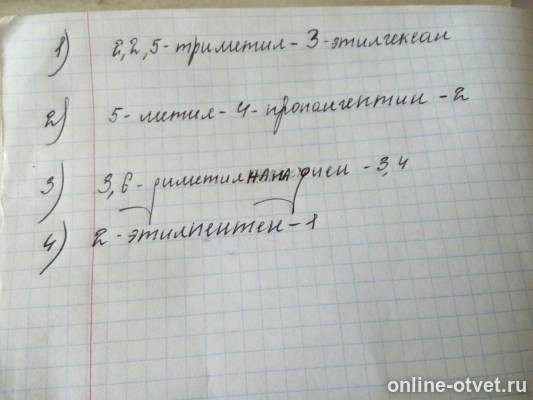 1) 2,2,5-триметил-3-этилгексан
2) 5-метил-4-пропангептин-2
3) 3,6-диметилнанадиен-3,4
4) 2-этилпентен-1
online-otvet.ru